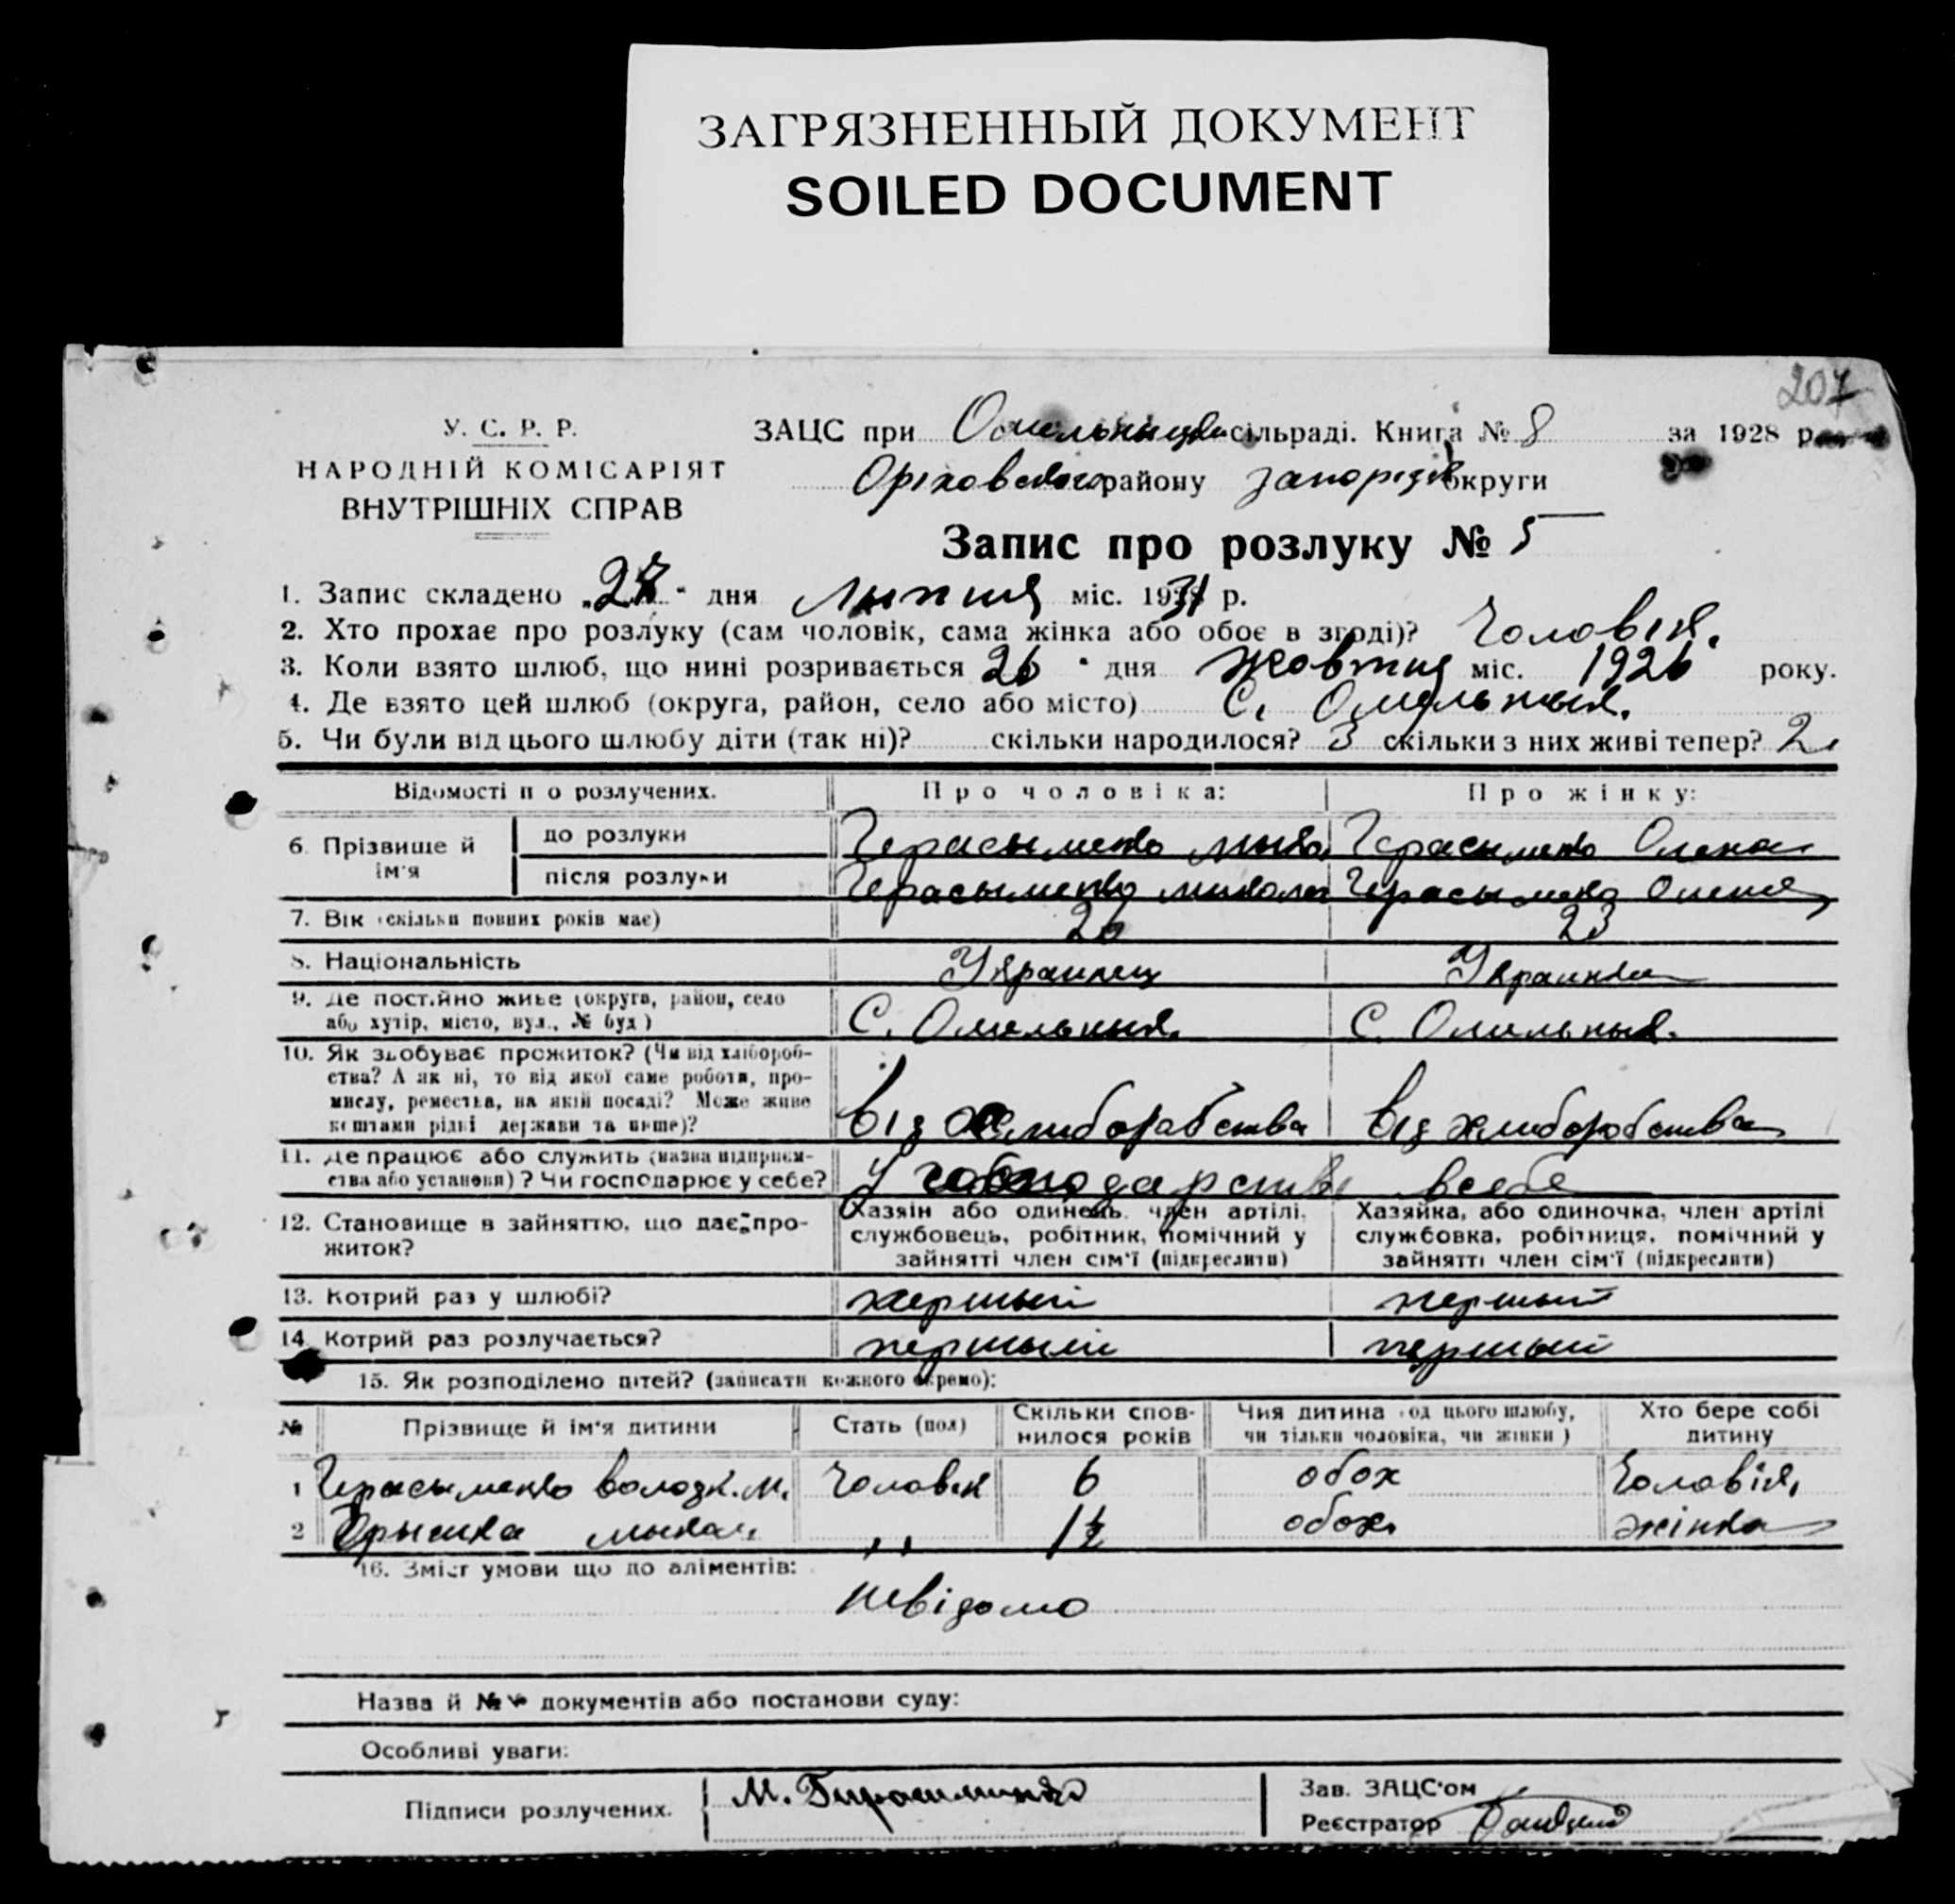 ЗАГРЯЗНЕННЫЙ ДОКУМЕНТ
SOILED DOCUMENT
207
У. С. Р. Р.
НАРОДНІЙ КОМІСАРІЯТ
ВНУТРІШНІХ СПРАВ
ЗАЦС при Омельницькій сільраді. Книга № 8 за 1928 р.
Оріховского району Запорізьк округи
Запис про розлуку № 5
1. Запис складено „27" дня Липня міс. 1931 р.
2. Хто прохає про розлуку (сам чоловік, сама жінка або обоє в згоді)? Чоловік.
3. Коли взято шлюб, що нині розривається 26 " дня Жовтня міс. 1926 року.
4. Де взято цей шлюб (округа, район, село або місто) С. Омельник.
5. Чи були від цього шлюбу діти (так ні)? скільки народилося? 3 скільки з них живі тепер? 2
Відомості п о розлучених. Про чоловіка: Про жінку:
6. Прізвище й ім'я до розлуки Герасыменко Мыко Герасыменко Олена
після розлуки Герасыменко Микола Герасыменко Олена
7. Вік (скільки повних років має) 23
8. Національність Украинец Украинка
9. Де постійно живе (округа, район, село або хутір, місто, вул., № буд) С. Омельнык. С. Омельнык.
10. Як здобуває прожиток? (Чи від хліборобства? А як ні, то від якої саме роботи, промислу, ремества, на якій посаді? Може живе коштами рідні держави та інше)? Від хлиборабства Від хлиборобства
11. Де працює або служить (назва підприємства або установи)? Чи господарює у себе? У господарстві всебе
12. Становище в зайняттю, що дає прожиток? Хазяін або одинець. член артілі, службовець, робітник, помічний у зайнятті член сім'ї (підкреслити) Хазяйка, або одиночка, член артілі службовка, робітниця, помічний у зайнятті член сім'ї (підкреслити)
13. Котрий раз у шлюбі? першый першый
14. Котрий раз розлучається? першый першый
15. Як розподілено дітей? (записати кожного окремо):
№ Прізвище й ім'я дитини Стать (пол) Скільки сповнилося років Чия дитина (од цього шлюбу, чи тільки чоловіка, чи жінки) Хто бере собі дитину
1 Герасыменко Володж. М. Чоловік 6 обох Чоловік,
2 Мыкол. " 1½ обох. жінка
16. Зміст умови що до аліментів:
Невідомо
Назва й №№ документів або постанови суду:
Особливі уваги:
Підписи розлучених. М. Гирасименко
Зав. ЗАЦС'ом
Реєстратор